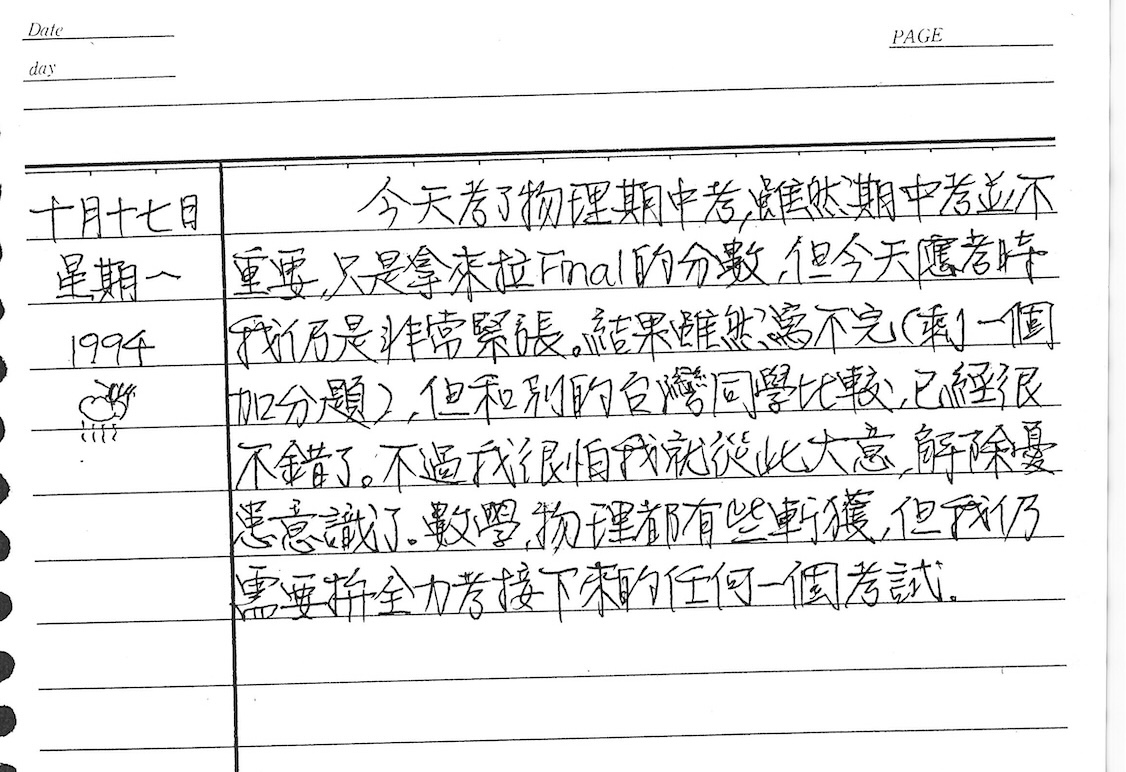 Date
PAGE
day
十月十七日
星期一
1994
今天考了物理期中考,雖然期中考並不
重要,只是拿來拉Final的分數,但今天應考時
我仍是非常緊張。結果雖然寫不完(剩一個
加分題),但和別的台灣同學比較,已經很
不錯了。不過我很怕我就從此大意,解除憂
患意識了。數學,物理都有些斬獲,但我仍
需要拚全力考接下來的任何一個考試。